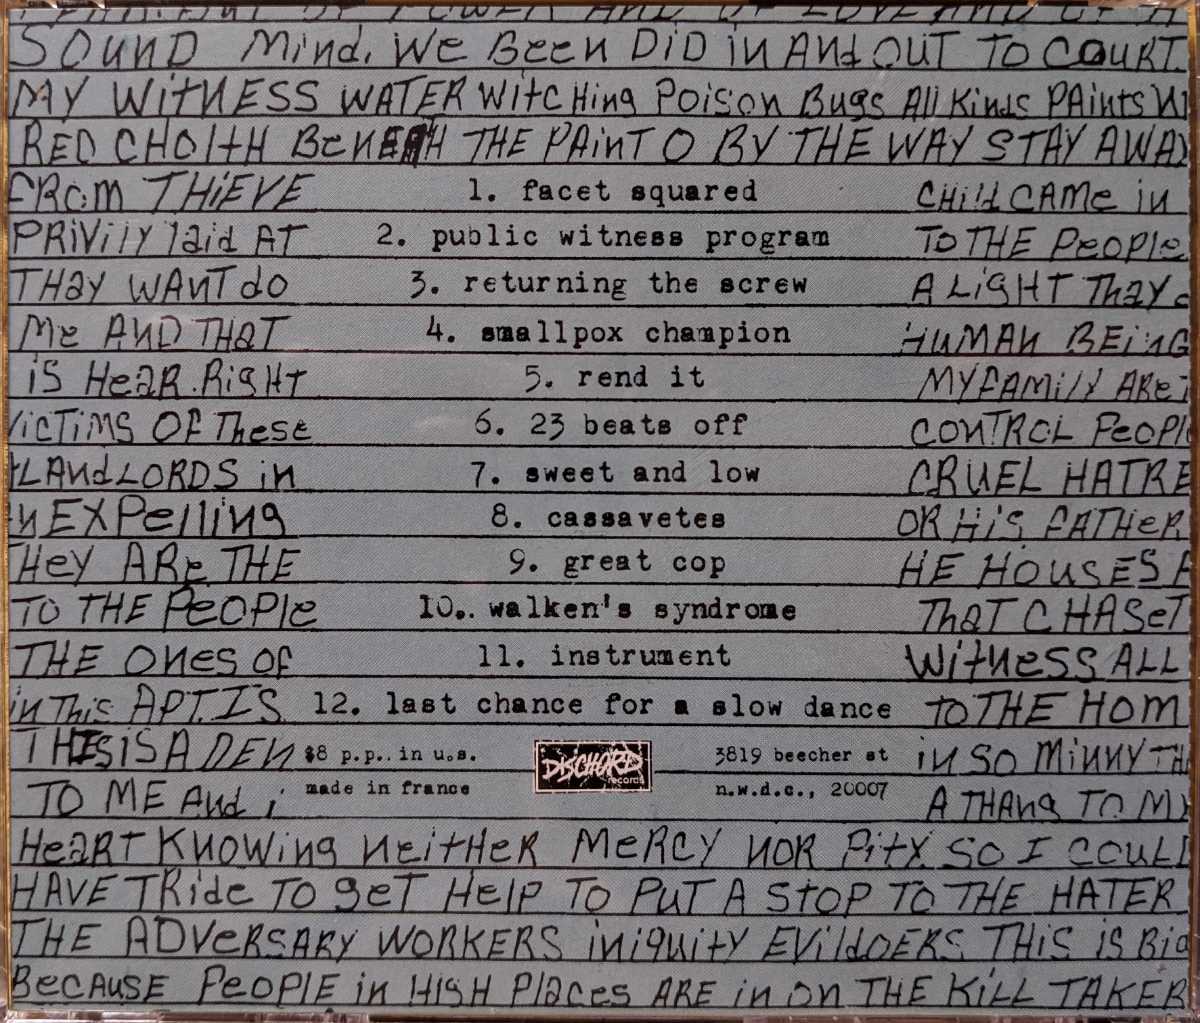 POWER AND OF LOVE AND OF A
SOUND MiND. WE BEEN DiD iN AND OUT TO COURT.
MY WiTNESS WATER WiTCHing POiSON BUgS All KindS PAiNTS
RED CHOltH BENEATH THE PAiNT O BY THE WAY STAY AWAY
FROM THiEVE 1. facet squared CHilD CAMe in
PRiViLY laid AT 2. public witness program TO THE PeoPle
THAY WANT do 3. returning the screw A LiGHT THAY
Me AND THAT 4. smallpox champion HUMAN BEiNG
iS HeaR. RigHT 5. rend it MY FAMiLY ARE
ViCTiMS OF THese 6. 23 beats off CONTROL PeoPl
LANdLORDS in 7. sweet and low CRUEL HATRE
EXPelling 8. cassavetes OR HiS FATHER
THeY ARe THE 9. great cop HE HOUSES
TO THE PeoPle 10.. walken's syndrome THaT CHASeT
THE ONes OF 11. instrument WiTNeSS ALL
in THiS APT. IS 12. last chance for a slow dance TO THE HOM
THiS iS A DEN $8 p.p.. in u.s. DISCHORD records 3819 beecher st iN SO MiNNY
TO ME And i made in france n.w.d.c., 20007 A THANg TO M
HeaRT KNOWiNg NeiTHeR MeRCY NOR PiTY SO I COUL
HAVE TRide TO geT HelP TO PUT A SToP TO THE HATER
THE ADVeRSARY WORKERS iNiQUiTY EVildOERS. THiS iS Big
BeCAUSE PeoPlE in HiGH PlaceS ARE iN ON THE KiLL TAKER